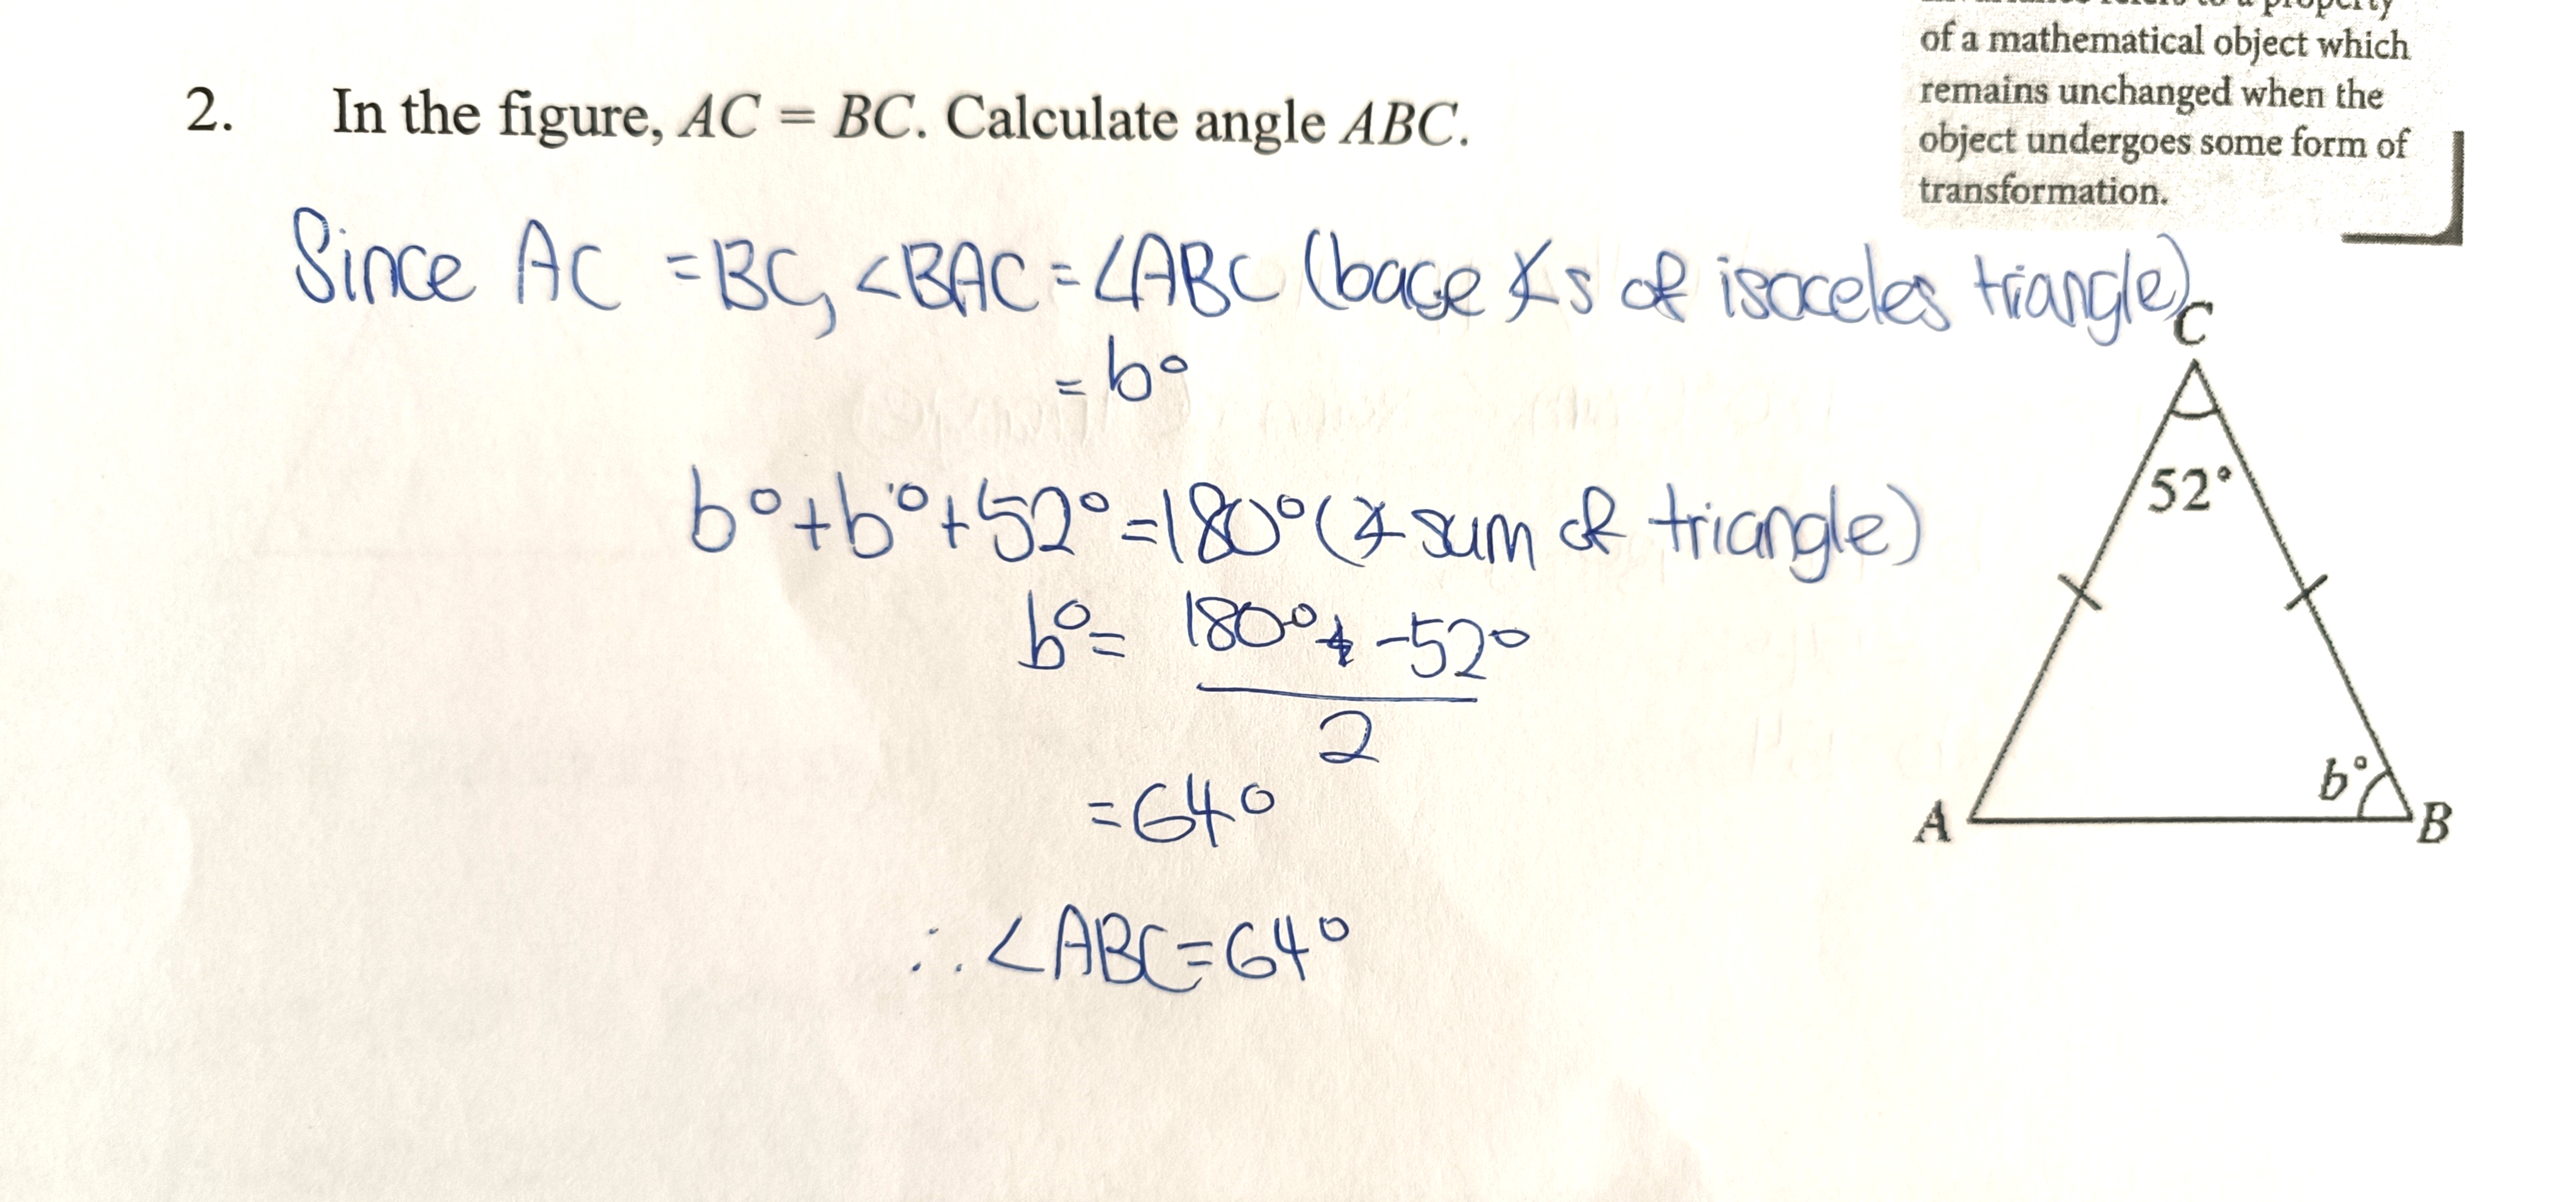 of a mathematical object which
remains unchanged when the
object undergoes some form of
transformation.
2. In the figure, AC = BC. Calculate angle ABC.
Since AC = BC, ∠BAC = ∠ABC (base ∠s of isoceles triangle)
= b°
b° + b° + 52° = 180° (∠ sum of triangle)
b° = 180° - 52°
2
= 64°
∴ ∠ABC = 64°
C
52°
b°
A
B